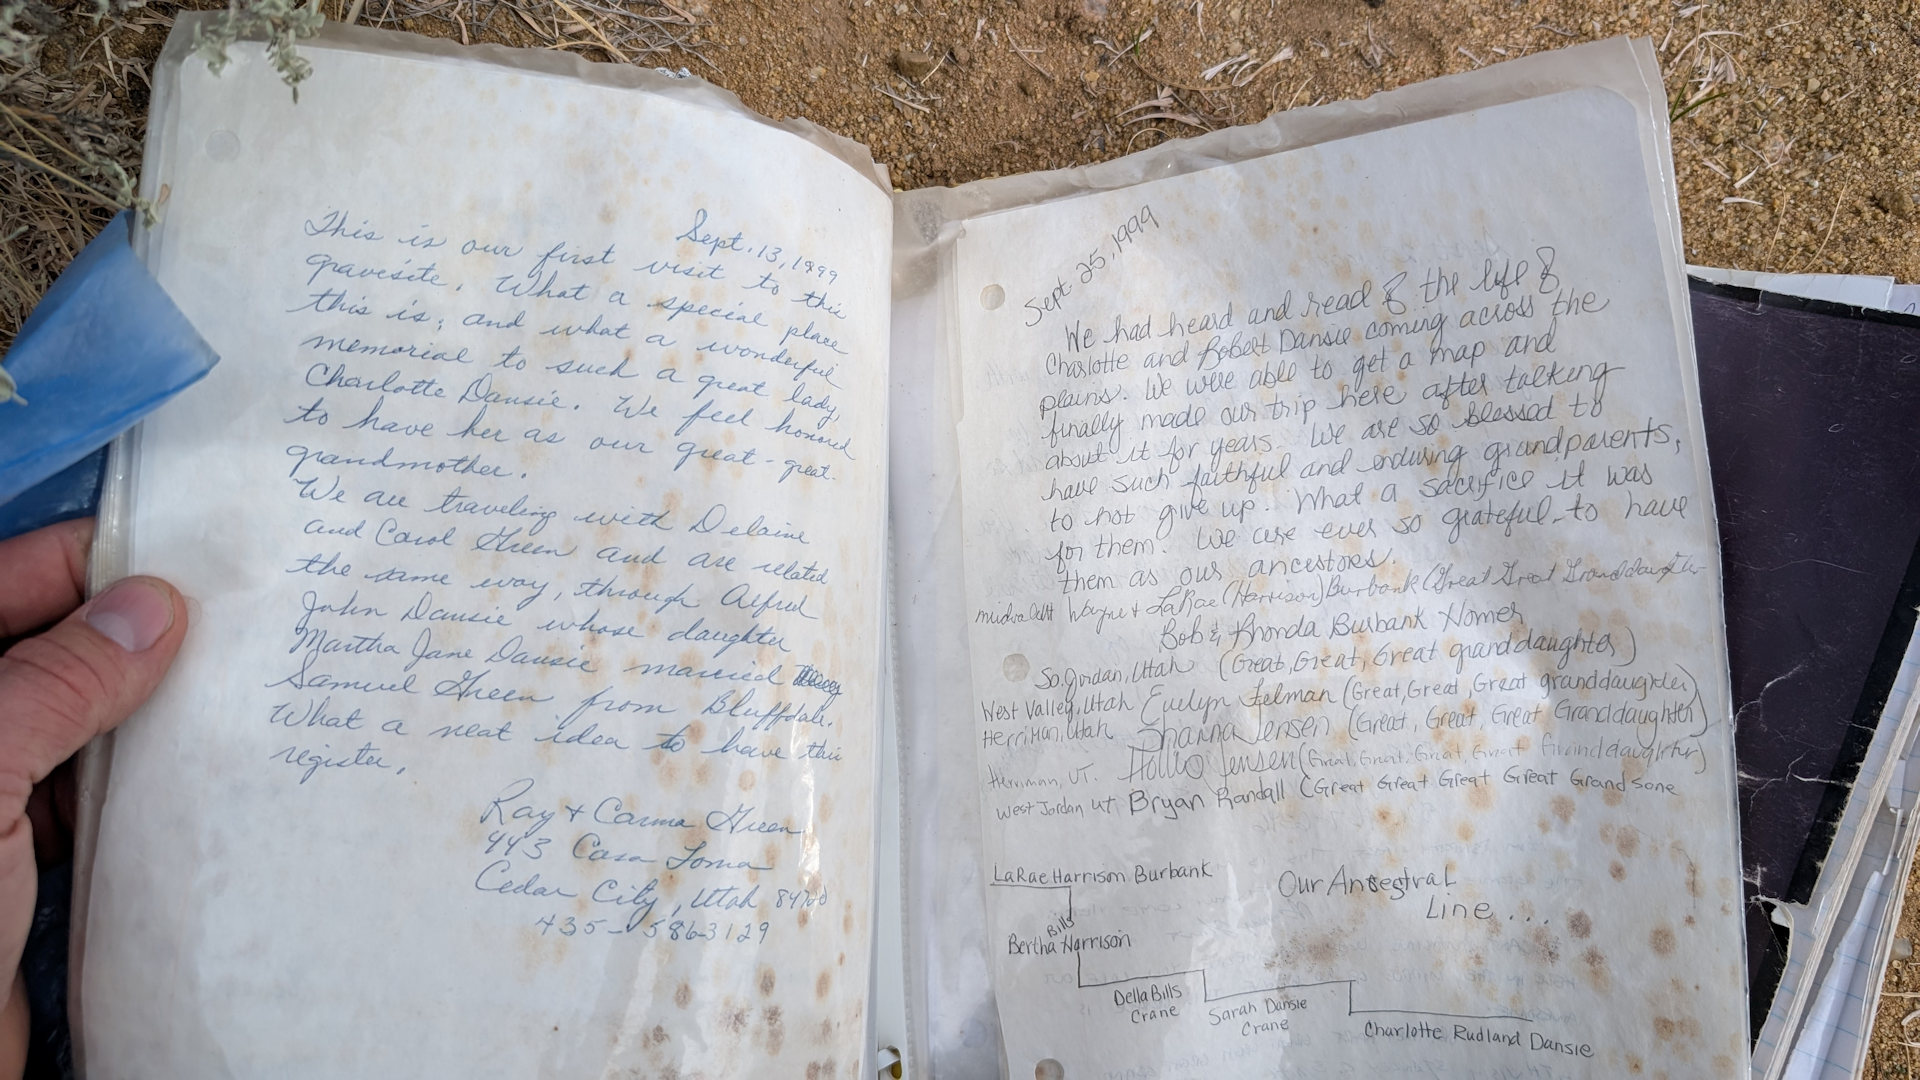 Sept. 13, 1999
This is our first visit to this
gravesite. What a special place
this is; and what a wonderful
memorial to such a great lady,
Charlotte Dansie. We feel honored
to have her as our great-great-
grandmother.
We are traveling with Delaine
and Carol Green and are related
the same way, through Alfred
John Dansie whose daughter
Martha Jane Dansie married
Samuel Green from Bluffdale.
What a neat idea to have this
register.
Ray & Carma Green
443 Casa Loma
Cedar City, Utah 84720
435-586-3129
Sept. 25, 1999
We had heard and read of the life of
Charlotte and Robert Dansie coming across the
plains. We were able to get a map and
finally made our trip here after talking
about it for years. We are so blessed to
have such faithful and enduring grandparents,
to not give up. What a sacrifice it was
for them. We are ever so grateful to have
them as our ancestors.
Wayne & LaRae (Harrison) Burbank (Great Great Granddaughter
Bob & Rhonda Burbank Homer
So. Jordan, Utah (Great, Great, Great granddaughter)
West Valley, Utah Evelyn Felman (Great, Great, Great granddaughter)
Herriman, Utah Shanna Jensen (Great, Great, Great Granddaughter)
Herriman, UT. Hollie Jensen (Great, Great, Great, Great Granddaughter)
West Jordan UT Bryan Randall (Great Great Great Great Grandsone
LaRae Harrison Burbank
Our Ancestral
Line...
Bills
Bertha Harrison
Della Bills
Crane
Sarah Dansie
Crane
Charlotte Rudland Dansie